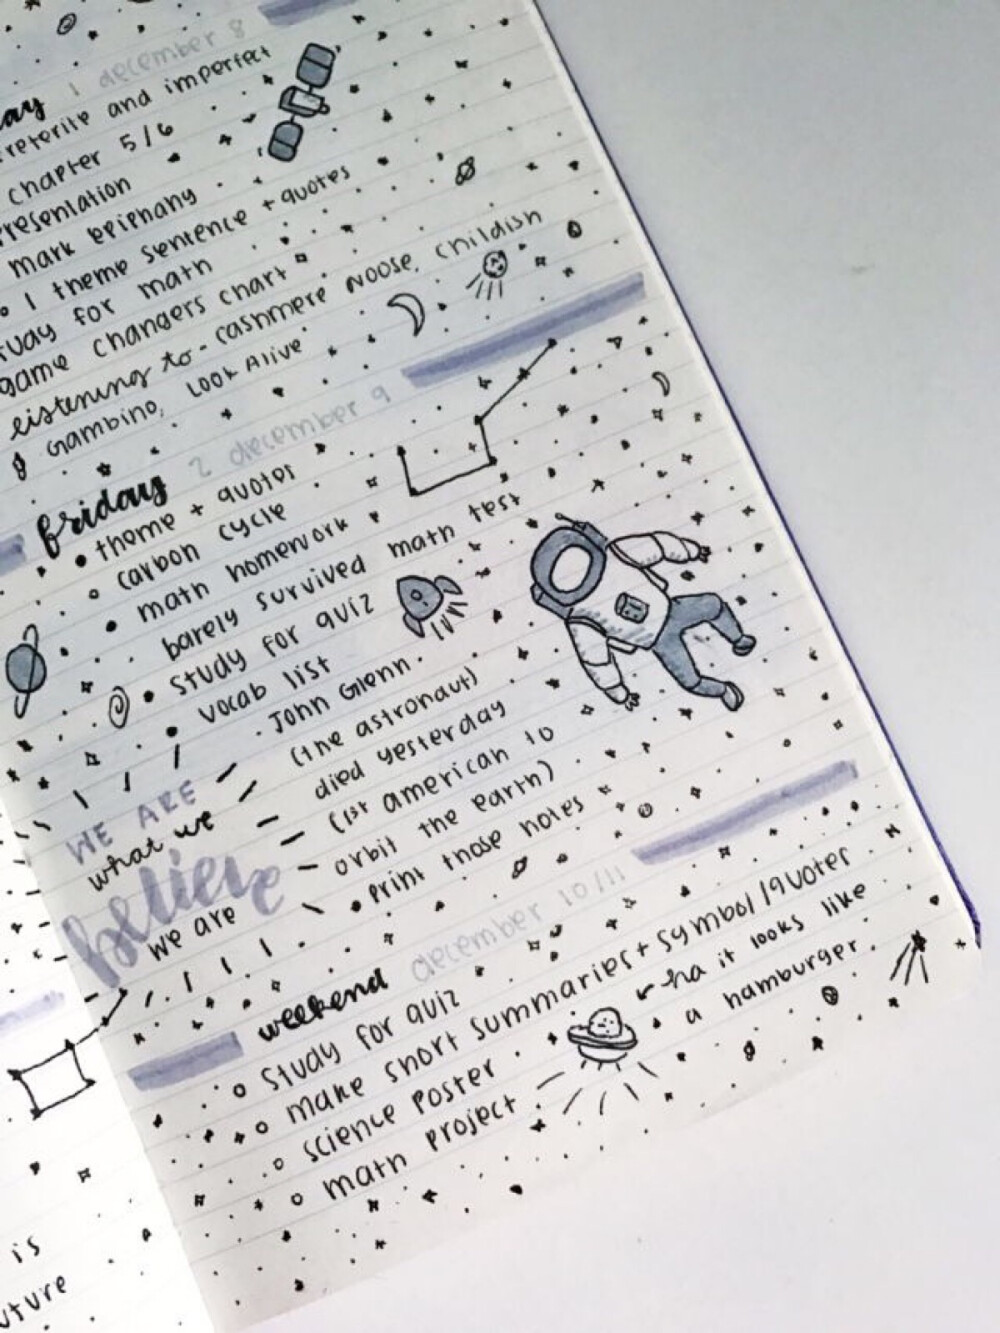 ay 1 december 8
reterite and imperfect
chapter 5/6
resentation
mark epiphany
1 theme sentence + quotes
tudy for math
game changers chart
listening to - cashmere Noose, childish
Gambino, Look Alive
friday 2 december 9
theme + quotes
carbon cycle
math homework
barely survived math test
study for quiz
vocab list
John Glenn
(the astronaut)
died yesterday
(1st american to
orbit the earth)
print those notes
WE ARE
what we
believe
we are
weekend december 10/11
study for quiz
make short summaries + symbol/quotes
ha it looks like
a hamburger
science poster
math project
is
uture